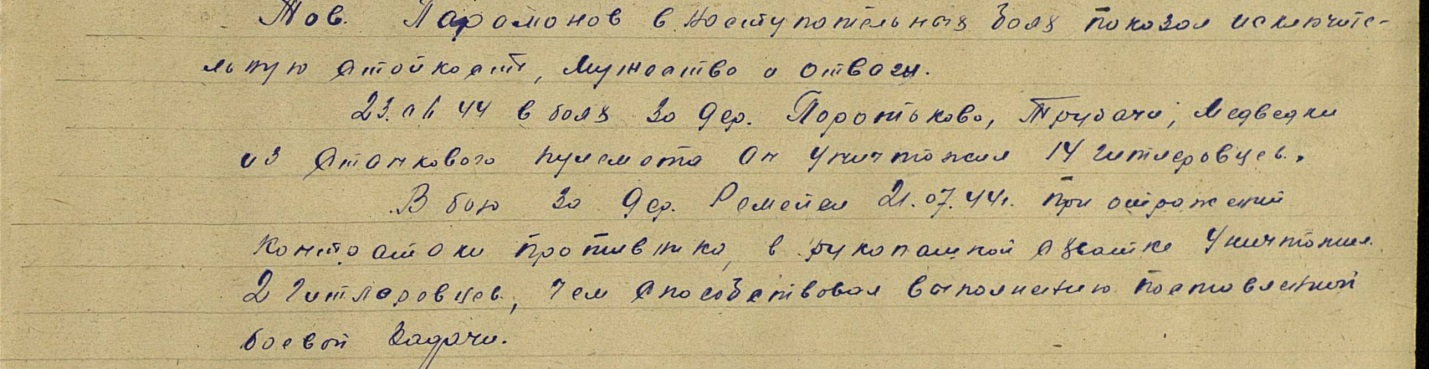 Тов. Парамонов в наступательных боях показал исключите-
льную стойкость, мужество и отвагу.
23.06 44 в боях за дер. Поротьково, Трубачи, Медведки
из станкового пулемета он уничтожил 14 гитлеровцев.
В бою за дер. 21.07.44г. при отражений
контратаки противника, в рукопашной схватке уничтожил
2 гитлеровцев, чем способствовал выполнению поставленной
боевой задачи.